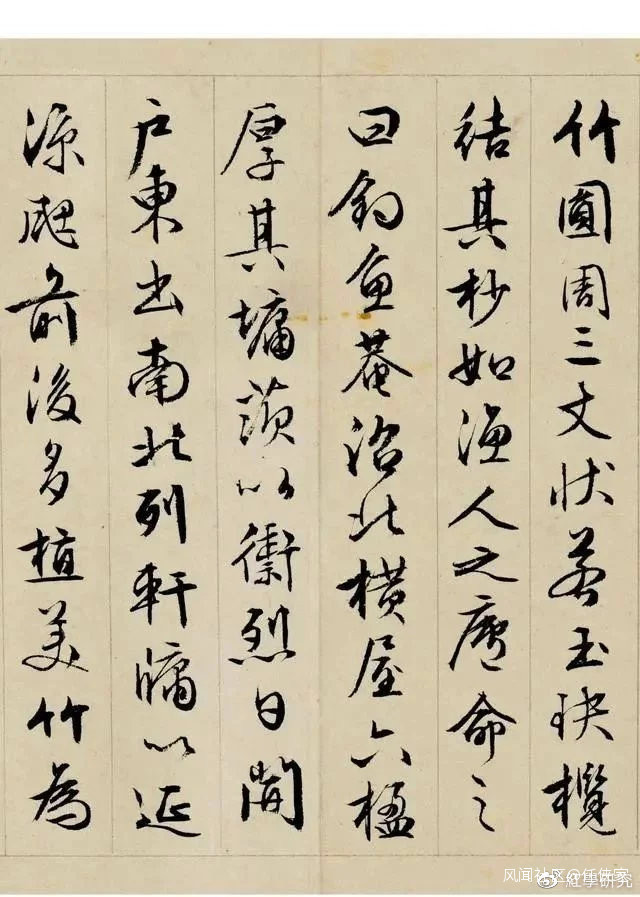 竹圓周三丈狀若玉玦攬
結其杪如漁人之廬命之
曰釣魚菴沼北橫屋六楹
厚其墉茨以御烈日開
戶東出南北列軒牖以延
涼颸前後多植美竹為
风闻社区
@紅學研究